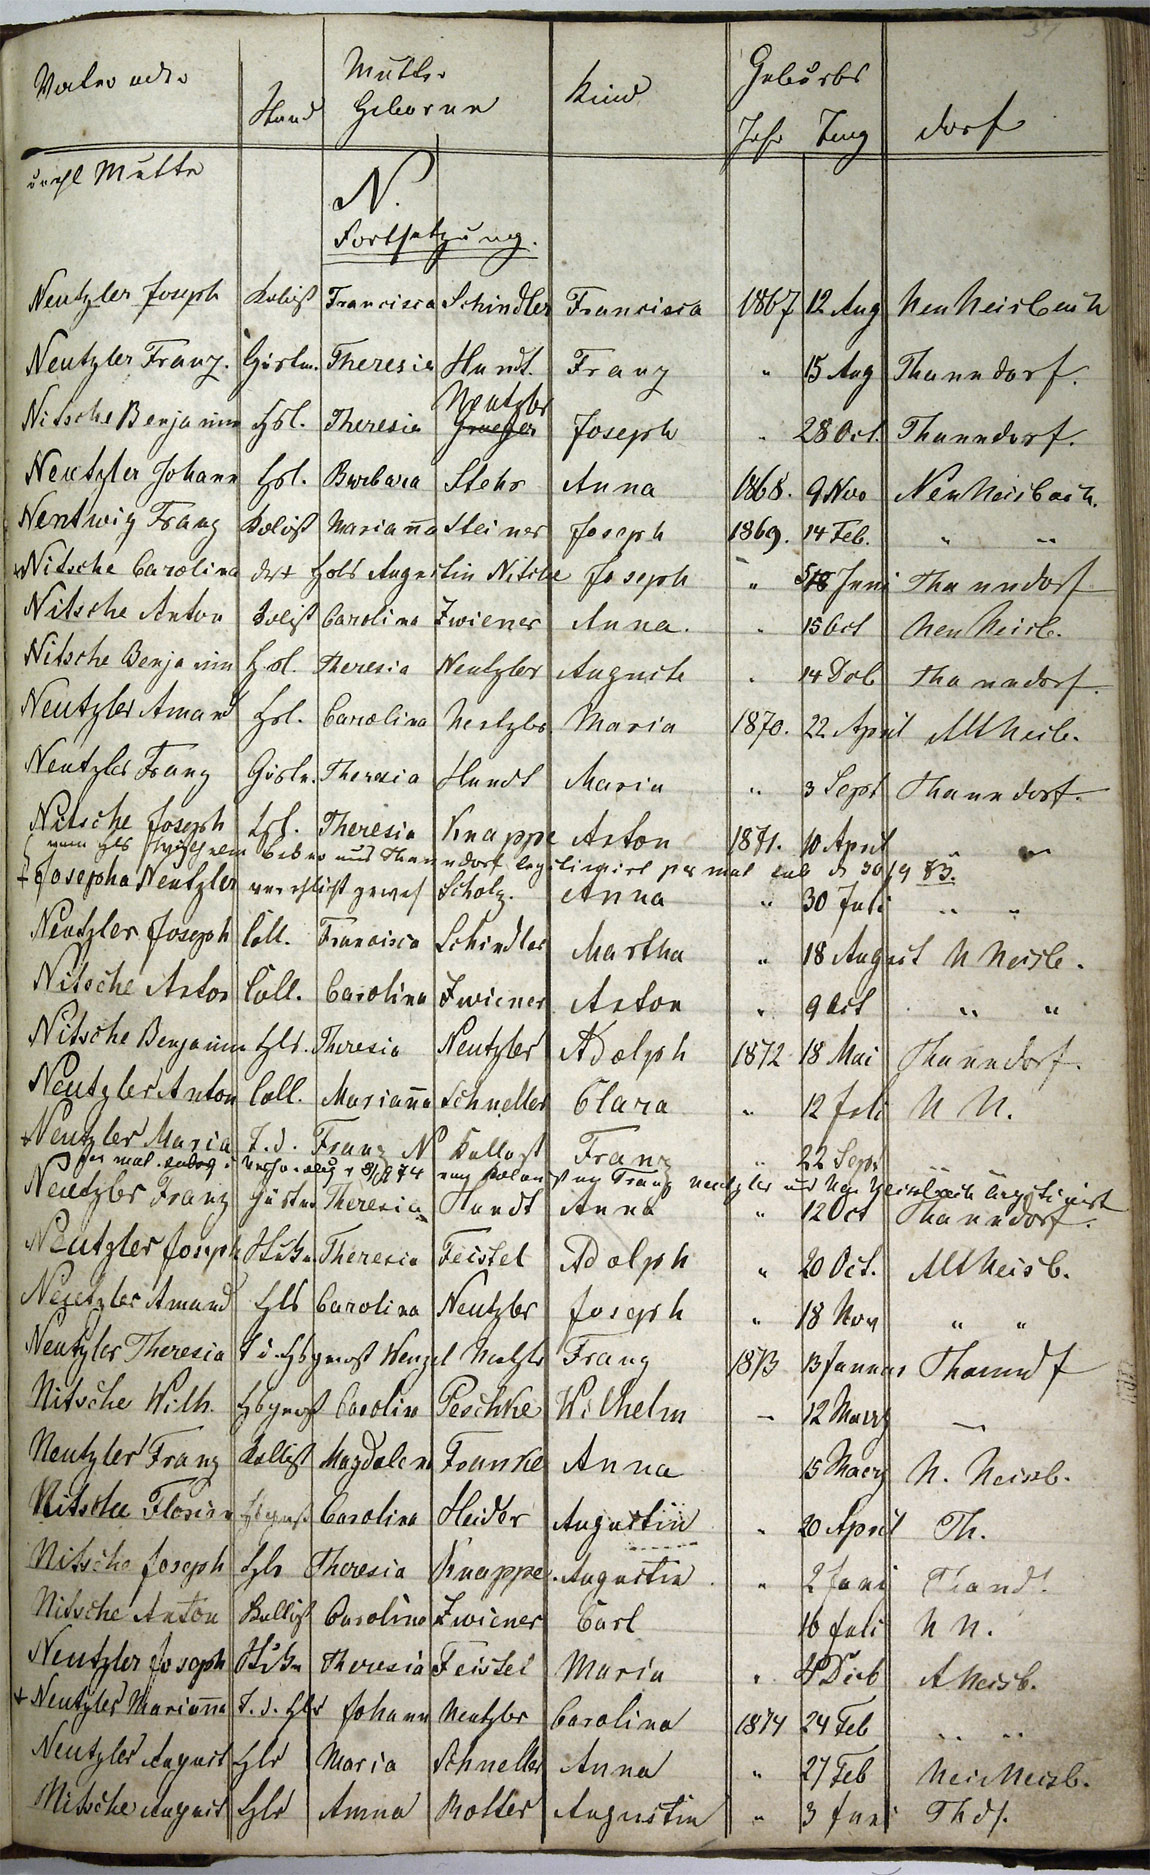 Vater oder Stand Mutter Geborne Kind Geburts Jahr Tag Dorf
unehl Mutter
N.
Fortsetzung.
Neutzler Joseph Kolist Francisca Schindler Francisca 1867 12 Aug Neu Neisbach
Neutzler Franz. Gärtn. Theresia Hundt. Franz " 15 Aug Thanndorf.
Nitsche Benjamin Hsl. Theresia Neutzler Joseph " 28 Oct. Thanndorf.
Neutzler Johann Hsl. Barbara Stehr Anna 1868. 9 Nov Neu Neisbach.
Nentwig Franz Kolist Marianna Steiner Joseph 1869. 14 Feb. " "
+ Nitsche Carolina der + Hsls Augustin Nitsche Joseph " 18 Juni Thanndorf
Nitsche Anton Kolist Carolina Zwiener Anna. " 15 Oct Neu Neisb.
Nitsche Benjamin Hsl. Theresia Neutzler Auguste " 14 Dcb Thanndorf.
Neutzler Amand Hsl. Carolina Neutzler Maria 1870. 22 April Alt Neisb.
Neutzler Franz Gärtn. Theresia Hundt Maria " 3 Sept Thanndorf.
Nitsche Joseph Hsl. Theresia Knappe Anton 1871. 10 April " "
aus Thanndorf legitimirt 30/9 83.
+ Josepha Neutzler verehlicht gewes Scholz. Anna " 30 Juli " "
Neutzler Joseph Coll. Francisca Schindler Martha " 18 August N Neisb.
Nitsche Anton Coll. Carolina Zwiener Anton " 9 Oct " "
Nitsche Benjamin Hls. Theresia Neutzler Adolph 1872 18 Mai Thanndorf.
Neutzler Anton Coll. Marianna Schneller Clara " 12 Juli N N.
+ Neutzler Maria T. d. Franz N Kollist Franz " 22 Sept
per mat. 74 Franz Neutzler legitimirt
Neutzler Franz Gärtn Theresia Hundt Anna " 12 Oct Thanndorf.
Neutzler Joseph Theresia Feistel Adolph " 20 Oct. Alt Neisb.
Neutzler Amand Hls Carolina Neutzler Joseph " 18 Nov " "
Neutzler Theresia T d. Hsgnoss Wenzel Netzler Franz 1873 13 Januar Thanndf
Nitsche Wilh. Hsgnoss Carolin Peschke Wilhelm – 12 Maerz –
Neutzler Franz Kollist Magdalena Franke Anna 15 Maerz N. Neissb.
Nitsche Florian Hsgnoss Carolina Heider Augustin " 20 April Th.
Nitsche Joseph Hls Theresia Knappe. Augustin " 2 Juni Thandf.
Nitsche Anton Kollist Carolina Zwiener Carl 10 Juli N N.
Neutzler Joseph Theresia Feistel Maria " 4 Dcb A Neisb.
+ Neutzler Marianna T. d. Hls Johann Neutzler Carolina 1874 24 Feb " "
Neutzler August Hls Maria Schneller Anna " 27 Feb Neu Neisb.
Nitsche August Hls Anna Rotter Augustin " 3 Juni Thdf.